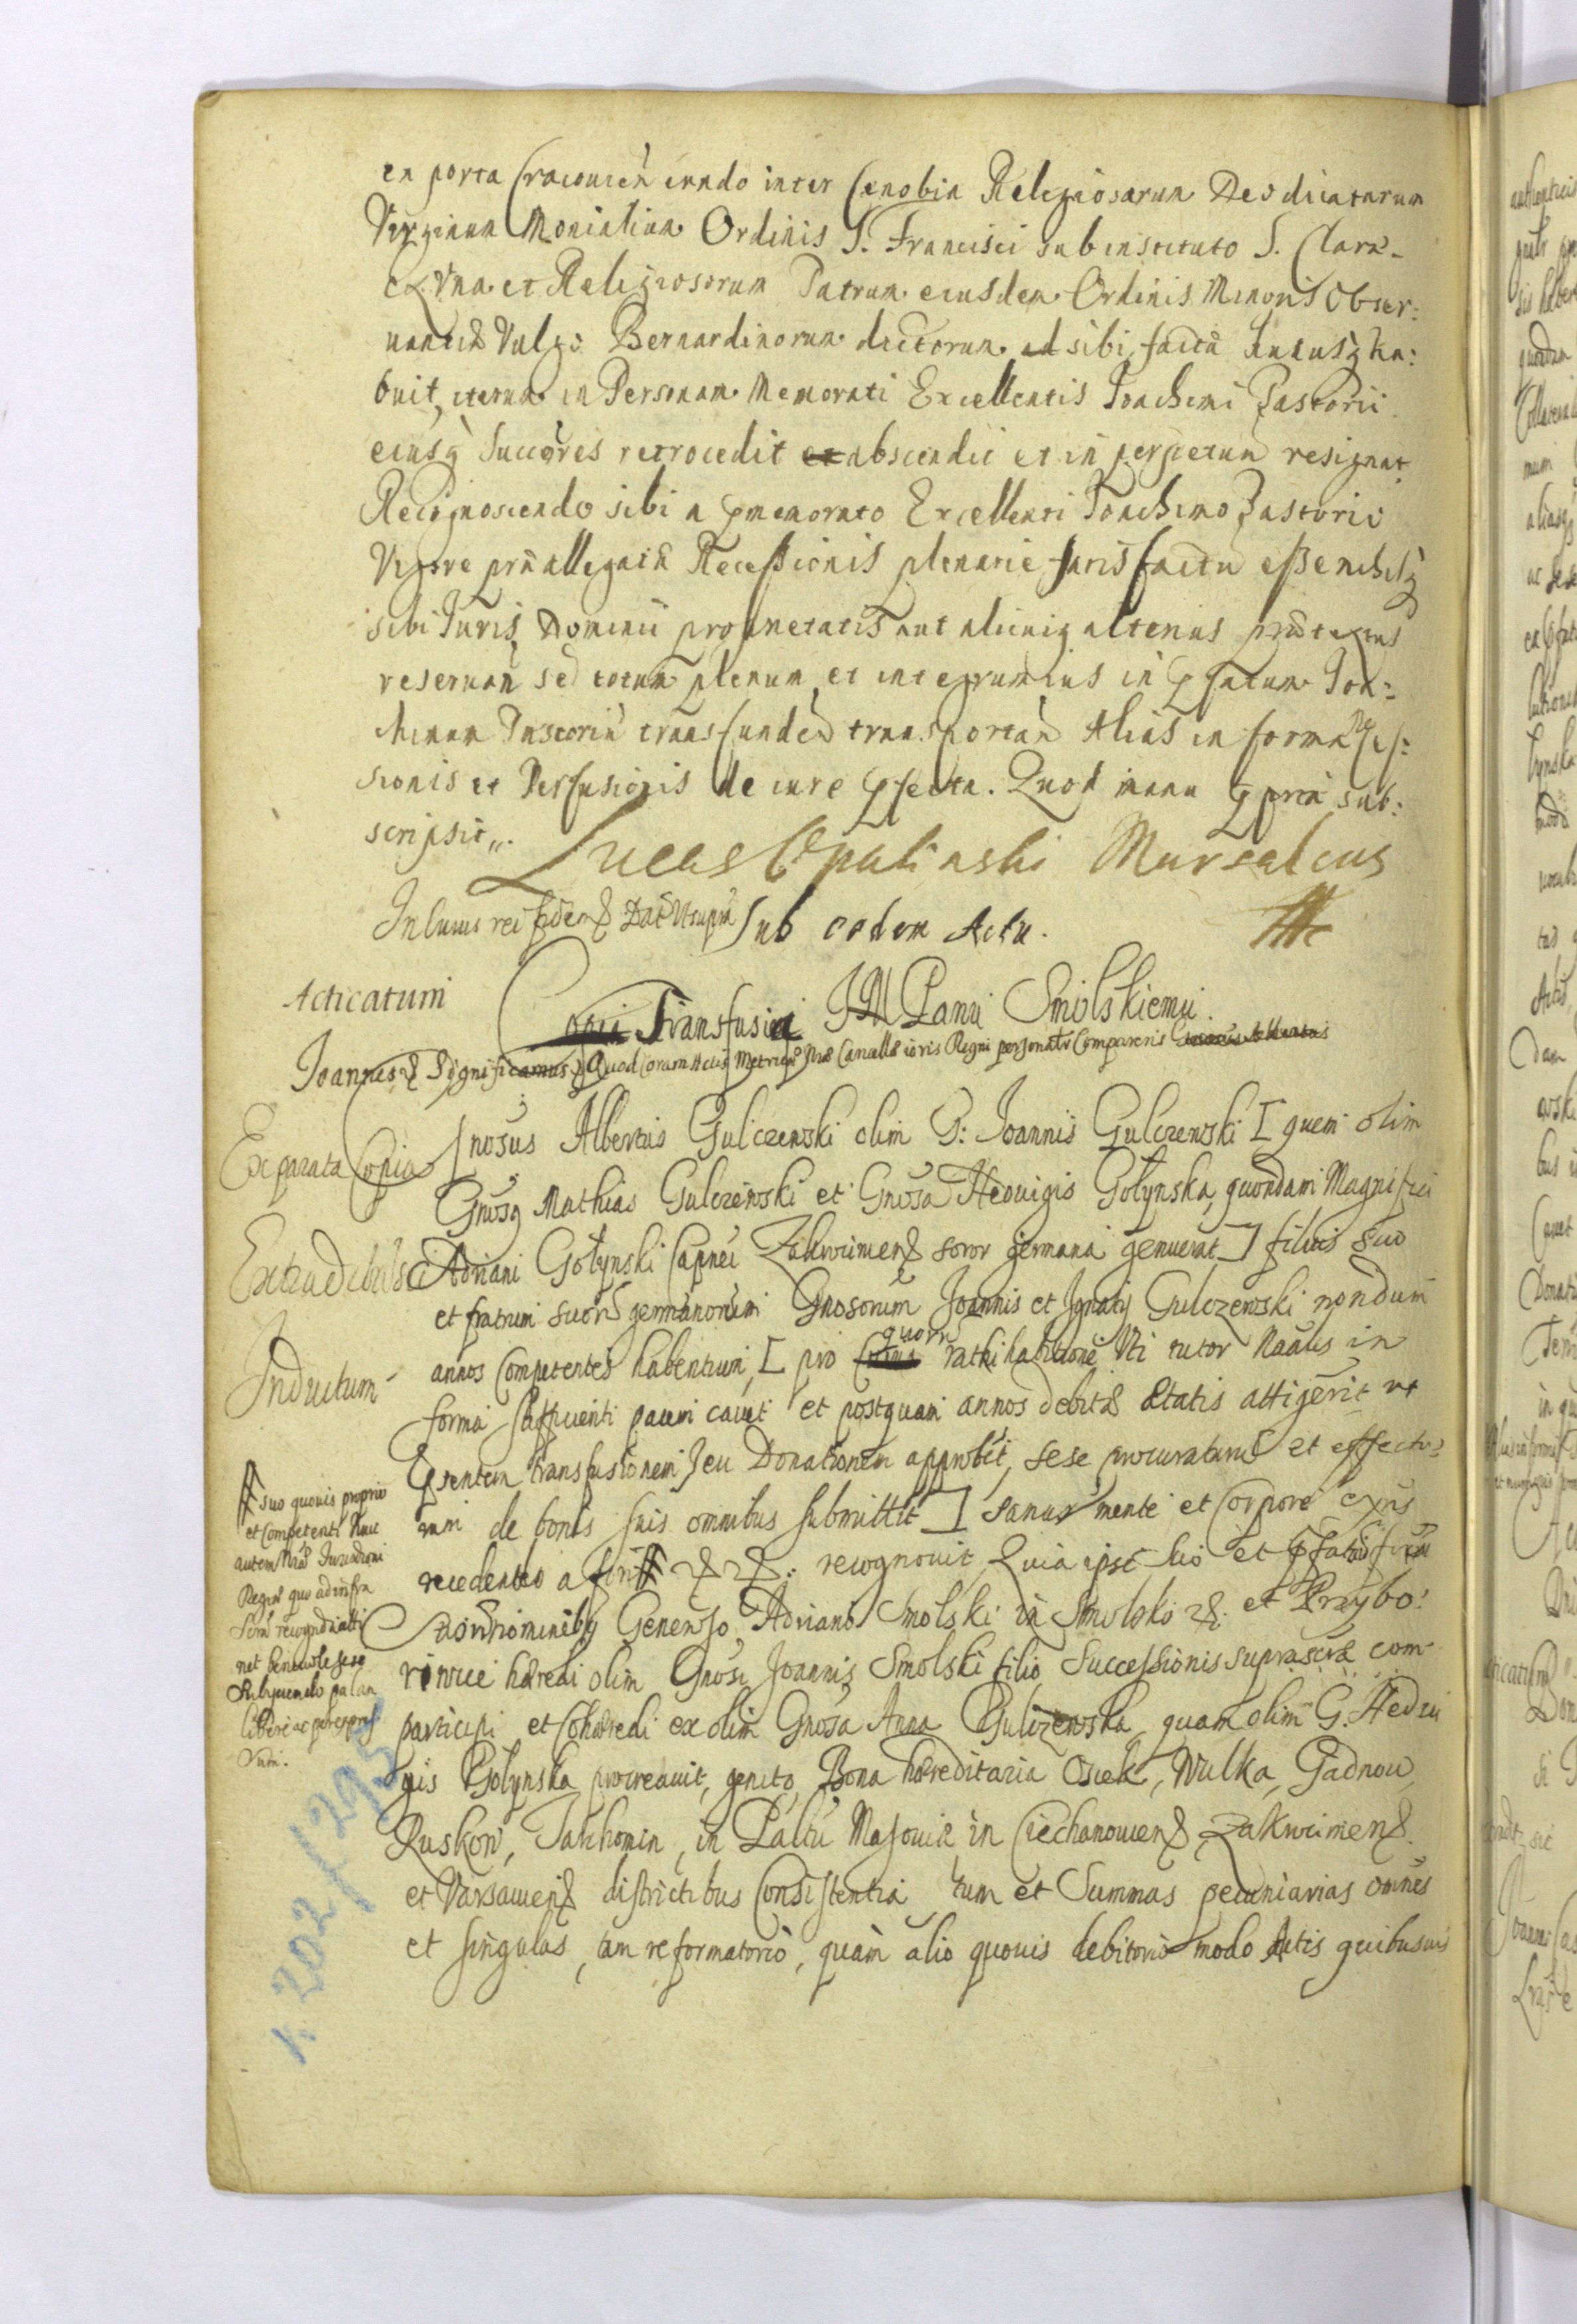 ex porta Cracouien eundo inter Cœnobia Religiosarum Deo dicatarum
Virginum Monialium Ordinis S. Francisci sub instituto S. Claræ
ex Vna et Religiosorum Patrum eiusdem Ordinis Minoris Obser:
uantiæ Vulgo Bernardinorum dictorum ad sibi factã hucusq ha:
buit, iterum in Personam Memorati Excellentis Joachimi Pastorii
eiusq Succōres retrocedit et abscendit et in perpetuum resignat
Recognoscendo sibi a pmemorato Excellenti Joachimo Pastorio
Vigore præallegatæ Recessionis plenarie satisfactũ esse nihilq
sibi Juris Dominii proprietatis aut alicuiq altenus prætextus
reseruan sed totum plenum et integrum ius in pfatum Joa:
chimum Pastoriũ transfunded transportand Alias in forma Reces:
sionis et Perfusionis de iure pfecta. Quod manu ppria sub:
scripsit„.
Lucas Opalinski Marsalcus
In huius rei fidem & Dat Vt supra
Sub eodem Actu.
Acticatum
Copia Transfusia JM Panu Smolskiemu.
Joannes & Significamus & Quod Coram Actis Metrices Nræ Cancellæ ioris Regni personatr Comparens
Exparata Copia
Gnosus Albertus Gulczewski olim G: Joannis Gulczewski [quem olim
Gnosq Mathias Gulczewski et Gnosa Hedvigis Gołynska, quondam Magnifici
Adriani Gołynski Capnei Zakrocimen& soror germana genuerat] filius suo
et fratrum suorũ germanorum Gnosorum Joannis et Ignatij Gulczewski nondum
Indutum
annos Competentes habentium, [pro quorũ rathihabitione Vti tutor Naãlis in
forma sufficienti pacum cauet et postquam annos debitæ Ætatis attigerit vt
psentem transfusionem seu Donationem approbet, sese procuraturũ et effectu:
rum de bonis suis omnibus submittit] sanus mente et Corpore exns
recedentes a for# & &: recognouit Quia ipse suo et pfatorũ frũm
suorũ nominibq Generoso Adriano Smolski in Smolsko &. et Przybo:
rowice hæredi olim Gnosi Joannis Smolski filio Successionis suprascræ com
participi et Cohæredi ex olim Gnosa Anna Gulczewska quam olim G. Hedui
gis Gołynska procreauit, genito, Bona hæreditaria Osiek, Wulka, Gadnow
Ruskow, Jakhomin, in Paltũ Masouiæ in Ciechanouien&, Zakroimen&.
et Varsauien& districtibus Consistentia tum et Summas pecuniarias omnes
et singulas, tam reformatorio, quàm alio quouis debitorio modo Actis quibusuis
# suo quouis proprio
et Competenti Nunc
autem Nræ Jurisdictioni
Regiæ quo ad infra
Scrã recognoscenda
net beneuole sese
Subijciendo palam
libere ac per expres
sum.
k. 202/1295